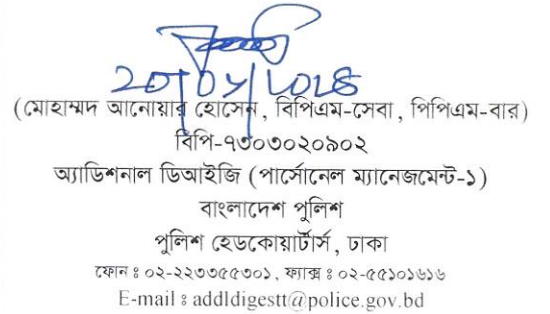 ২০/০৮/২০২৪
(মোহাম্মদ আনোয়ার হোসেন, বিপিএম-সেবা, পিপিএম-বার)
বিপি-৭৩০৩০২০৯০২
অ্যাডিশনাল ডিআইজি (পার্সোনেল ম্যানেজমেন্ট-১)
বাংলাদেশ পুলিশ
পুলিশ হেডকোয়ার্টার্স, ঢাকা
ফোন ঃ ০২-২২৩৩৫৫৩০১, ফ্যাক্স ঃ ০২-৫৫১০১৬১৬
E-mail ঃ addldigestt@police.gov.bd